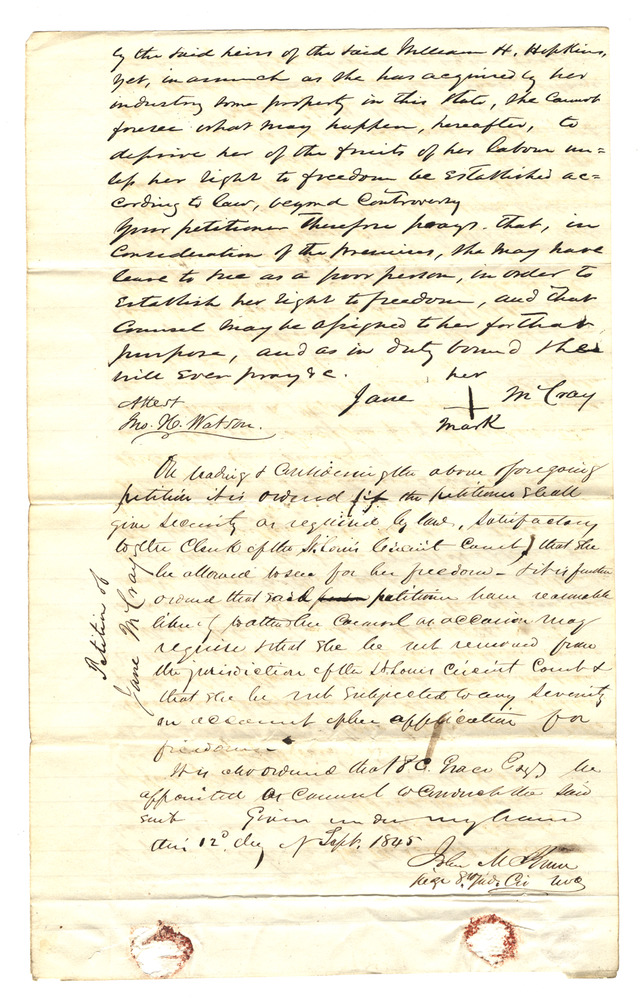 by the said heirs of the said William H. Hopkins,
yet, in asmuch as she has acquired by her
industry some property in this State, she cannot
foresee what may happen, hereafter, to
deprive her of the fruits of her labour un=
less her right to freedom be Established ac=
cording to law, beyond Controversy
Your petitioner Therefore prays that, in
Consideration of the premises, she may have
leave to sue as a poor person, in order to
Establish her right to freedom, and that
Counsel may be assigned to her for that
purpose, and as in duty bound she
will Ever pray &c.
her
Attest
Jane McCray
Jno. H. Watson.
mark
On reading & Considering the above & foregoing
petition it is ordered if the petitioner shall
give security as required by law, satisfactory
to the Clerk of the St. Louis Circuit Court, that she
be allowed to sue for her freedom - & it is further
ordered that said petitioner have reasonable
liberty to attend her Counsel as occasion may
require & that she be not removed from
the jurisdiction of the St Louis Circuit Court &
that she be not subjected to any severity
on account of her application for
freedom
It is also ordered that B C. Grace Esqr be
appointed as Counsel to conduct the said
suit Given under my hand
this 12th day of Sept. 1845
John M
Judge 8th Jud. Cir
Petition of
Jane McCray